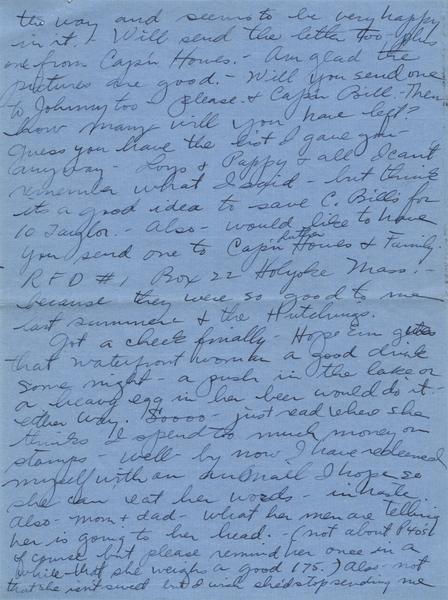 the way and seems to be very happy
in it. - Will send the letter too plus
one from Cap'n Howes. - Am glad the
pictures are good. - Will you send one
to Johnny too - please & Cap'n Bill. - Then
how many will you have left?
Guess you have the list I gave you
anyway - Lous & Pappy & all I can't
remember what I said - but think
its a good idea to save C. Bill's for
to Taylor. - Also - would like to have
you send one to Cap'n Howes & Family
R F D #1 Box 22 Holyoke Mass. -
because they were so good to me
last summer & the Hutchings.
Got a check finally - Hope Em gets
that waterfront woman a good drink
some night - a push in the lake or
a heavy egg in her beer would do it
either way. Soooo - just read where she
thinks I spend too much money on
stamps - well by now I have redeemed
myself with an AirMail I hope so
she can eat her words - in haste.
also - mom & dad - what her men are telling
her is going to her head. - (not about
of course but please remind her once in a
while that she weighs a good 175.) also - not
that she isn't swed but I wish she'd stop sending me